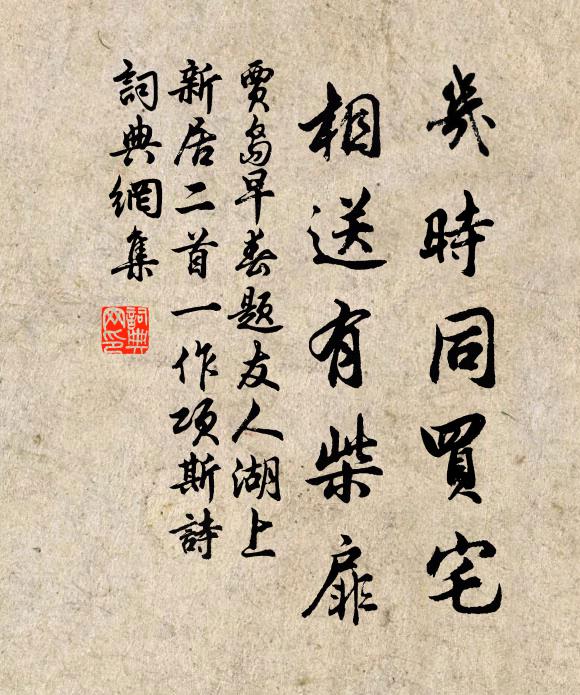 幾時同買宅
相送有柴扉
賈島早春題友人湖上
新居二首一作項斯詩
詞典網集
詞典網印